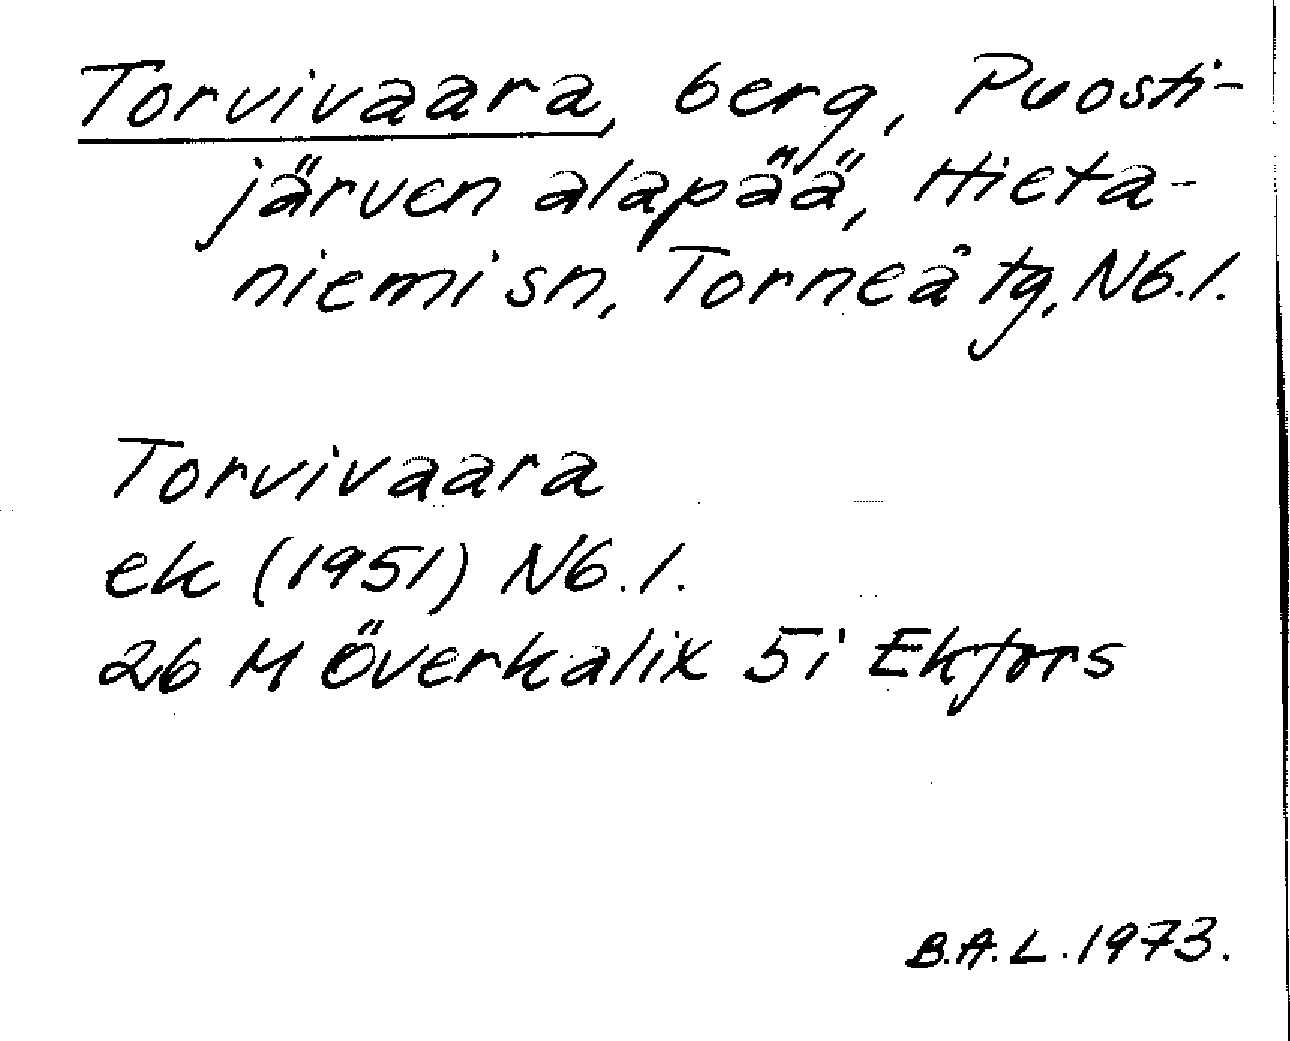 Torvivaara, berg, Puosti-
järven alapää, Hieta-
niemi sn, Torneå tg, Nb.l.
Torvivaara
ek (1951) Nb.l.
26 M Överkalix 5i Ekfors
B.A.L. 1973.